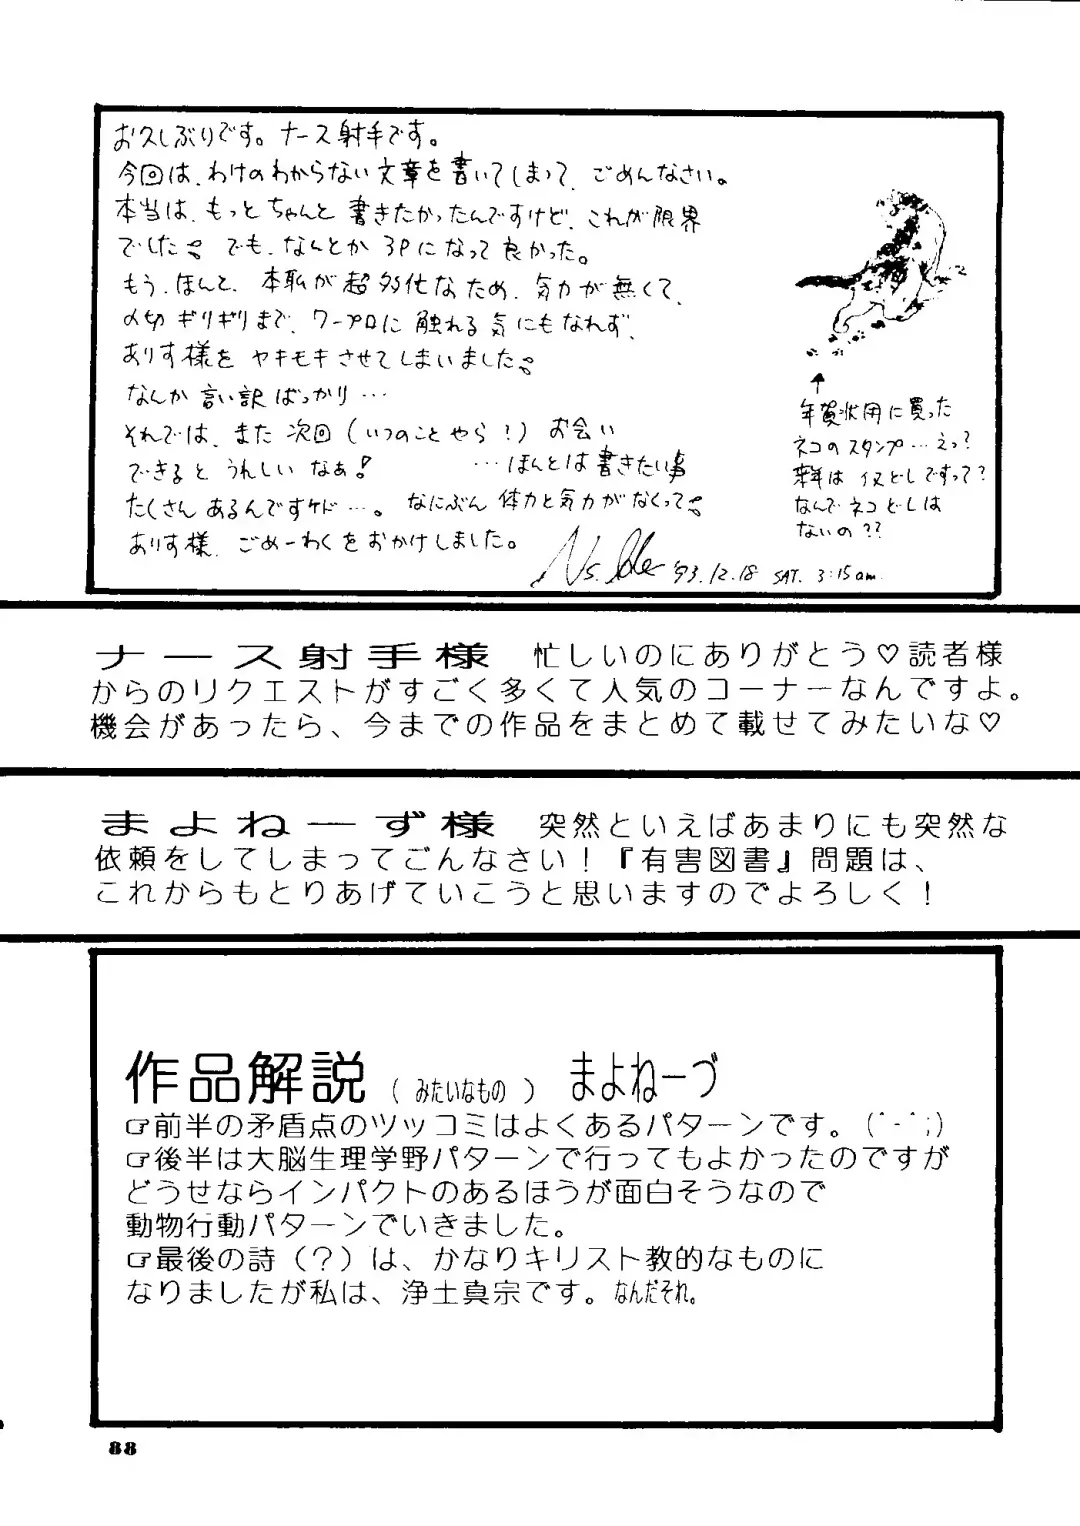 お久しぶりです。ナース射手です。
今回は、わけのわからない文章を書いてしまって、ごめんなさい。
本当は、もっとちゃんと書きたかったんですけど、これが限界
でした。でも、なんとか3Pになって良かった。
もう、ほんと、本職が超多忙なため、気力が無くて、
〆切ギリギリまで、ワープロに触れる気にもなれず、
ありす様をヤキモキさせてしまいました。
なんか言い訳ばっかり…
それでは、また次回(いつのことやら!)お会い
できるとうれしいなぁ! …ほんとは書きたい事
たくさんあるんですケド…。なにぶん体力と気力がなくって。
ありす様、ごめーわくをおかけしました。
Ns. '93.12.18 SAT. 3:15am.
↑
年賀状用に買った
ネコのスタンプ…えっ?
来年はイヌどしですって?
なんでネコどしは
ないの??
ナース射手様 忙しいのにありがとう♡読者様
からのリクエストがすごく多くて人気のコーナーなんですよ。
機会があったら、今までの作品をまとめて載せてみたいな♡
まよねーず様 突然といえばあまりにも突然な
依頼をしてしまってごんなさい!『有害図書』問題は、
これからもとりあげていこうと思いますのでよろしく!
作品解説(みたいなもの) まよねーづ
☞前半の矛盾点のツッコミはよくあるパターンです。(^-^;)
☞後半は大脳生理学野パターンで行ってもよかったのですが
どうせならインパクトのあるほうが面白そうなので
動物行動パターンでいきました。
☞最後の詩(?)は、かなりキリスト教的なものに
なりましたが私は、浄土真宗です。なんだそれ。
88